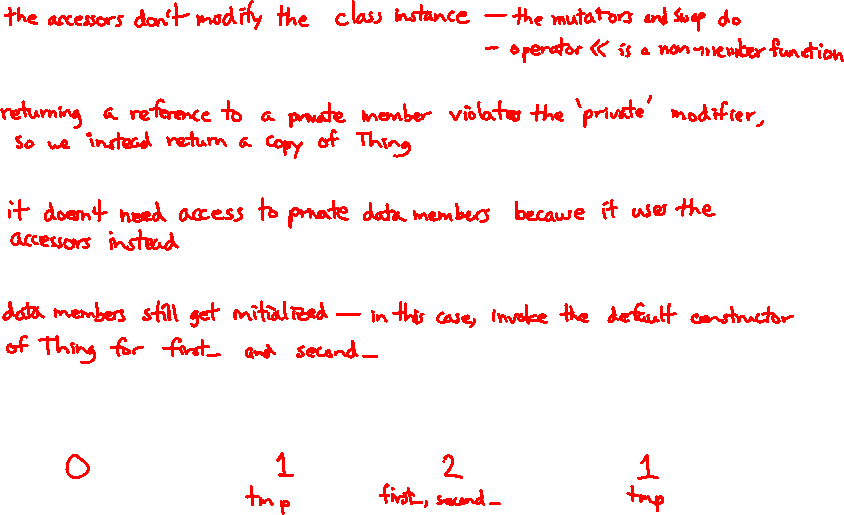 the accessors don't modify the class instance — the mutators and swap do
– operator << is a non-member function
returning a reference to a private member violates the 'private' modifier,
so we instead return a copy of Thing
it doesn't need access to private data members because it uses the
accessors instead
data members still get initialized — in this case, invoke the default constructor
of Thing for first_ and second_
0 1 2 1
tmp first_, second_ tmp